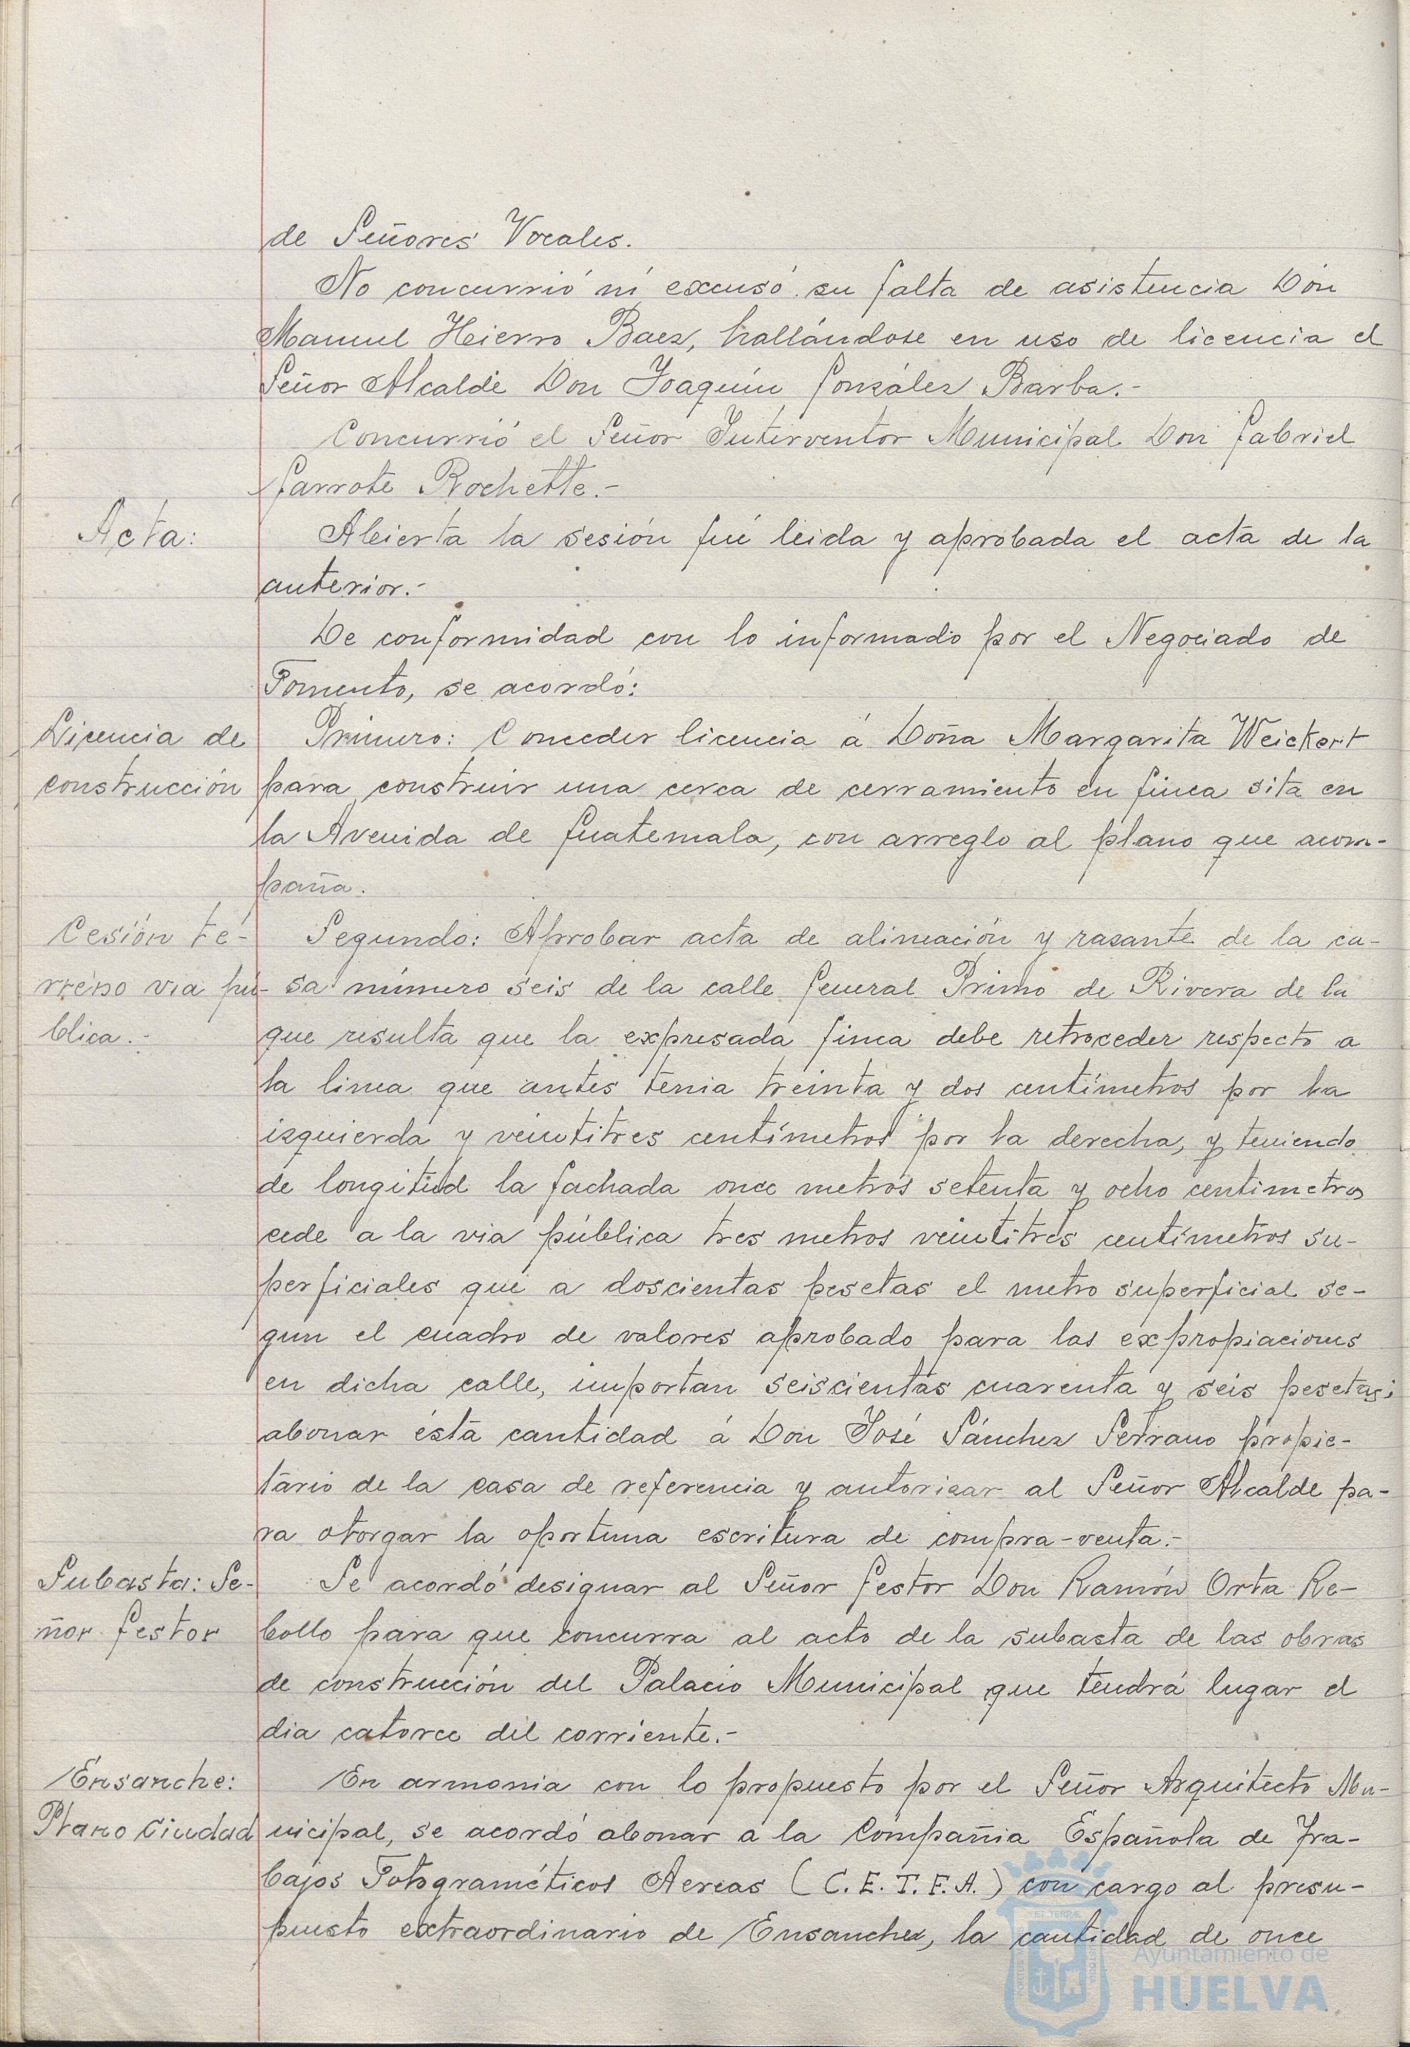 de Señores Vocales.
No concurrió ni excusó su falta de asistencia Don
Manuel Hierro Baez, hallándose en uso de licencia el
Señor Alcalde Don Joaquín González Barba.-
Concurrió el Señor Interventor Municipal Don Gabriel
Garrote Rochette.-
Acta:
Abierta la sesión fué leida y aprobada el acta de la
anterior.-
De conformidad con lo informado por el Negociado de
Fomento, se acordó:
Licencia de
construcción
Primero: Conceder licencia á Doña Margarita Weickert
para construir una cerca de cerramiento en finca sita en
la Avenida de Guatemala, con arreglo al plano que acom-
paña.
Cesión te-
rreno via pú-
blica.-
Segundo: Aprobar acta de alineación y rasante de la ca-
sa número seis de la calle General Primo de Rivera de la
que resulta que la expresada finca debe retroceder respecto a
la linea que antes tenia treinta y dos centímetros por la
izquierda y veintitres centímetros por la derecha, y teniendo
de longitud la fachada once metros setenta y ocho centimetros
cede a la via pública tres metros veintitres centímetros su-
perficiales que a doscientas pesetas el metro superficial se-
gun el cuadro de valores aprobado para las expropiaciones
en dicha calle, importan seiscientas cuarenta y seis pesetas;
abonar ésta cantidad á Don José Sánchez Serrano propie-
tario de la casa de referencia y autorizar al Señor Alcalde pa-
ra otorgar la oportuna escritura de compra-venta.-
Subasta: Se-
ñor Gestor
Se acordó designar al Señor Gestor Don Ramón Orta Re-
bollo para que concurra al acto de la subasta de las obras
de construcción del Palacio Municipal que tendrá lugar el
dia catorce del corriente.-
Ensanche:
Plano Ciudad
En armonia con lo propuesto por el Señor Arquitecto Mu-
nicipal, se acordó abonar a la Compañia Española de Tra-
bajos Fotograméticos Aereas (C.E.T.F.A.) con cargo al presu-
puesto extraordinario de Ensanchez, la cantidad de once
Ayuntamiento de
HUELVA